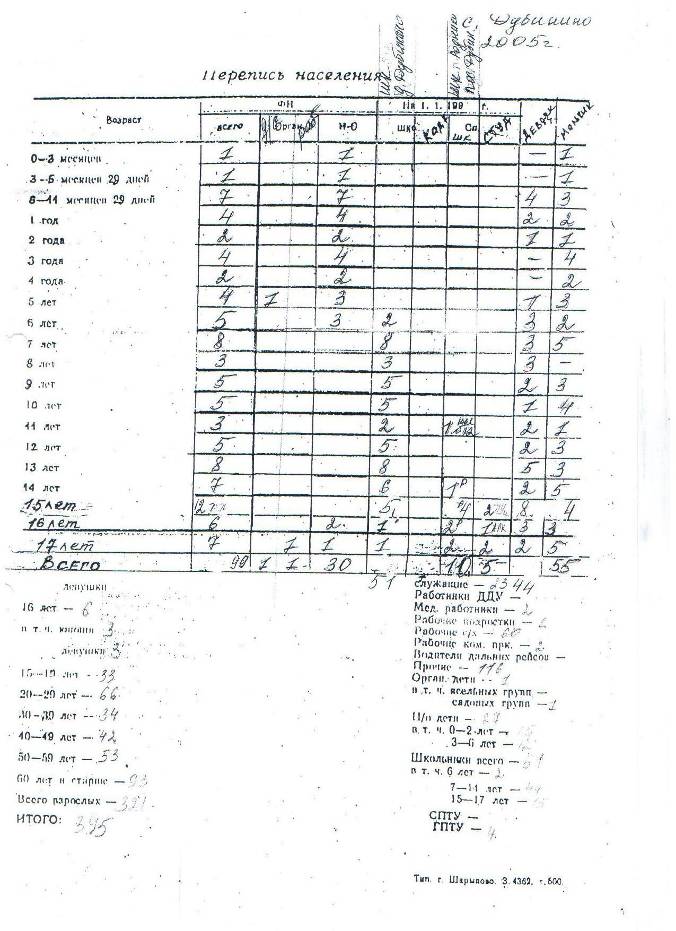 с. Дубинино
2005г.
Перепись населения
шк
д. Дубинино
шк
Возраст ФН На 1. 1. 199 г.
всего Орган. Н-О шко Сп. шк СТУД девоч мальчик
0—3 месяцев 1 1 — 1
3—5 месяцев 29 дней 1 1 — 1
6—11 месяцев 29 дней 7 7 4 3
1 год 4 4 2 2
2 года 2 2 1 1
3 года 4 4 - 4
4 года 2 2 - 2
5 лет 4 1 3 1 3
6 лет 5 3 2 3 2
7 лет 8 8 3 5
8 лет 3 3 3 -
9 лет 5 5 2 3
10 лет 5 5 1 4
11 лет 3 2 1 2 1
12 лет 5 5 2 3
13 лет 8 8 5 3
14 лет 7 6 1 2 5
15 лет 12 5 4 2 8 4
16 лет 6 2 1 2 1 3 3
17 лет 7 1 1 1 2 2 2 5
Всего 99 1 1 30 10 5 55
51
девушки
16 лет — 6
в т. ч. юноши 3
девушки 3
15—19 лет — 33
20—29 лет — 66
30—39 лет — 34
40—49 лет — 42
50—59 лет — 53
60 лет и старше — 93
Всего взрослых — 321
ИТОГО: 395
служащие — 2344
Работники ДДУ —
Мед. работники — 2
Рабочие подростки —
Рабочие с/х — 60
Рабочие ком. прк. — 2
Водители дальних рейсов —
Прочие — 116
Орган. дети — 1
в т. ч. ясельных групп —
садовых групп — 1
Н/о дети — 27
в т. ч. 0—2 лет —
3—6 лет —
Школьники всего — 51
в т. ч. 6 лет — 2
7—14 лет —
15—17 лет —
СПТУ —
ГПТУ — 4
Тип. г. Шарыпово. З. 4362, т. 500.